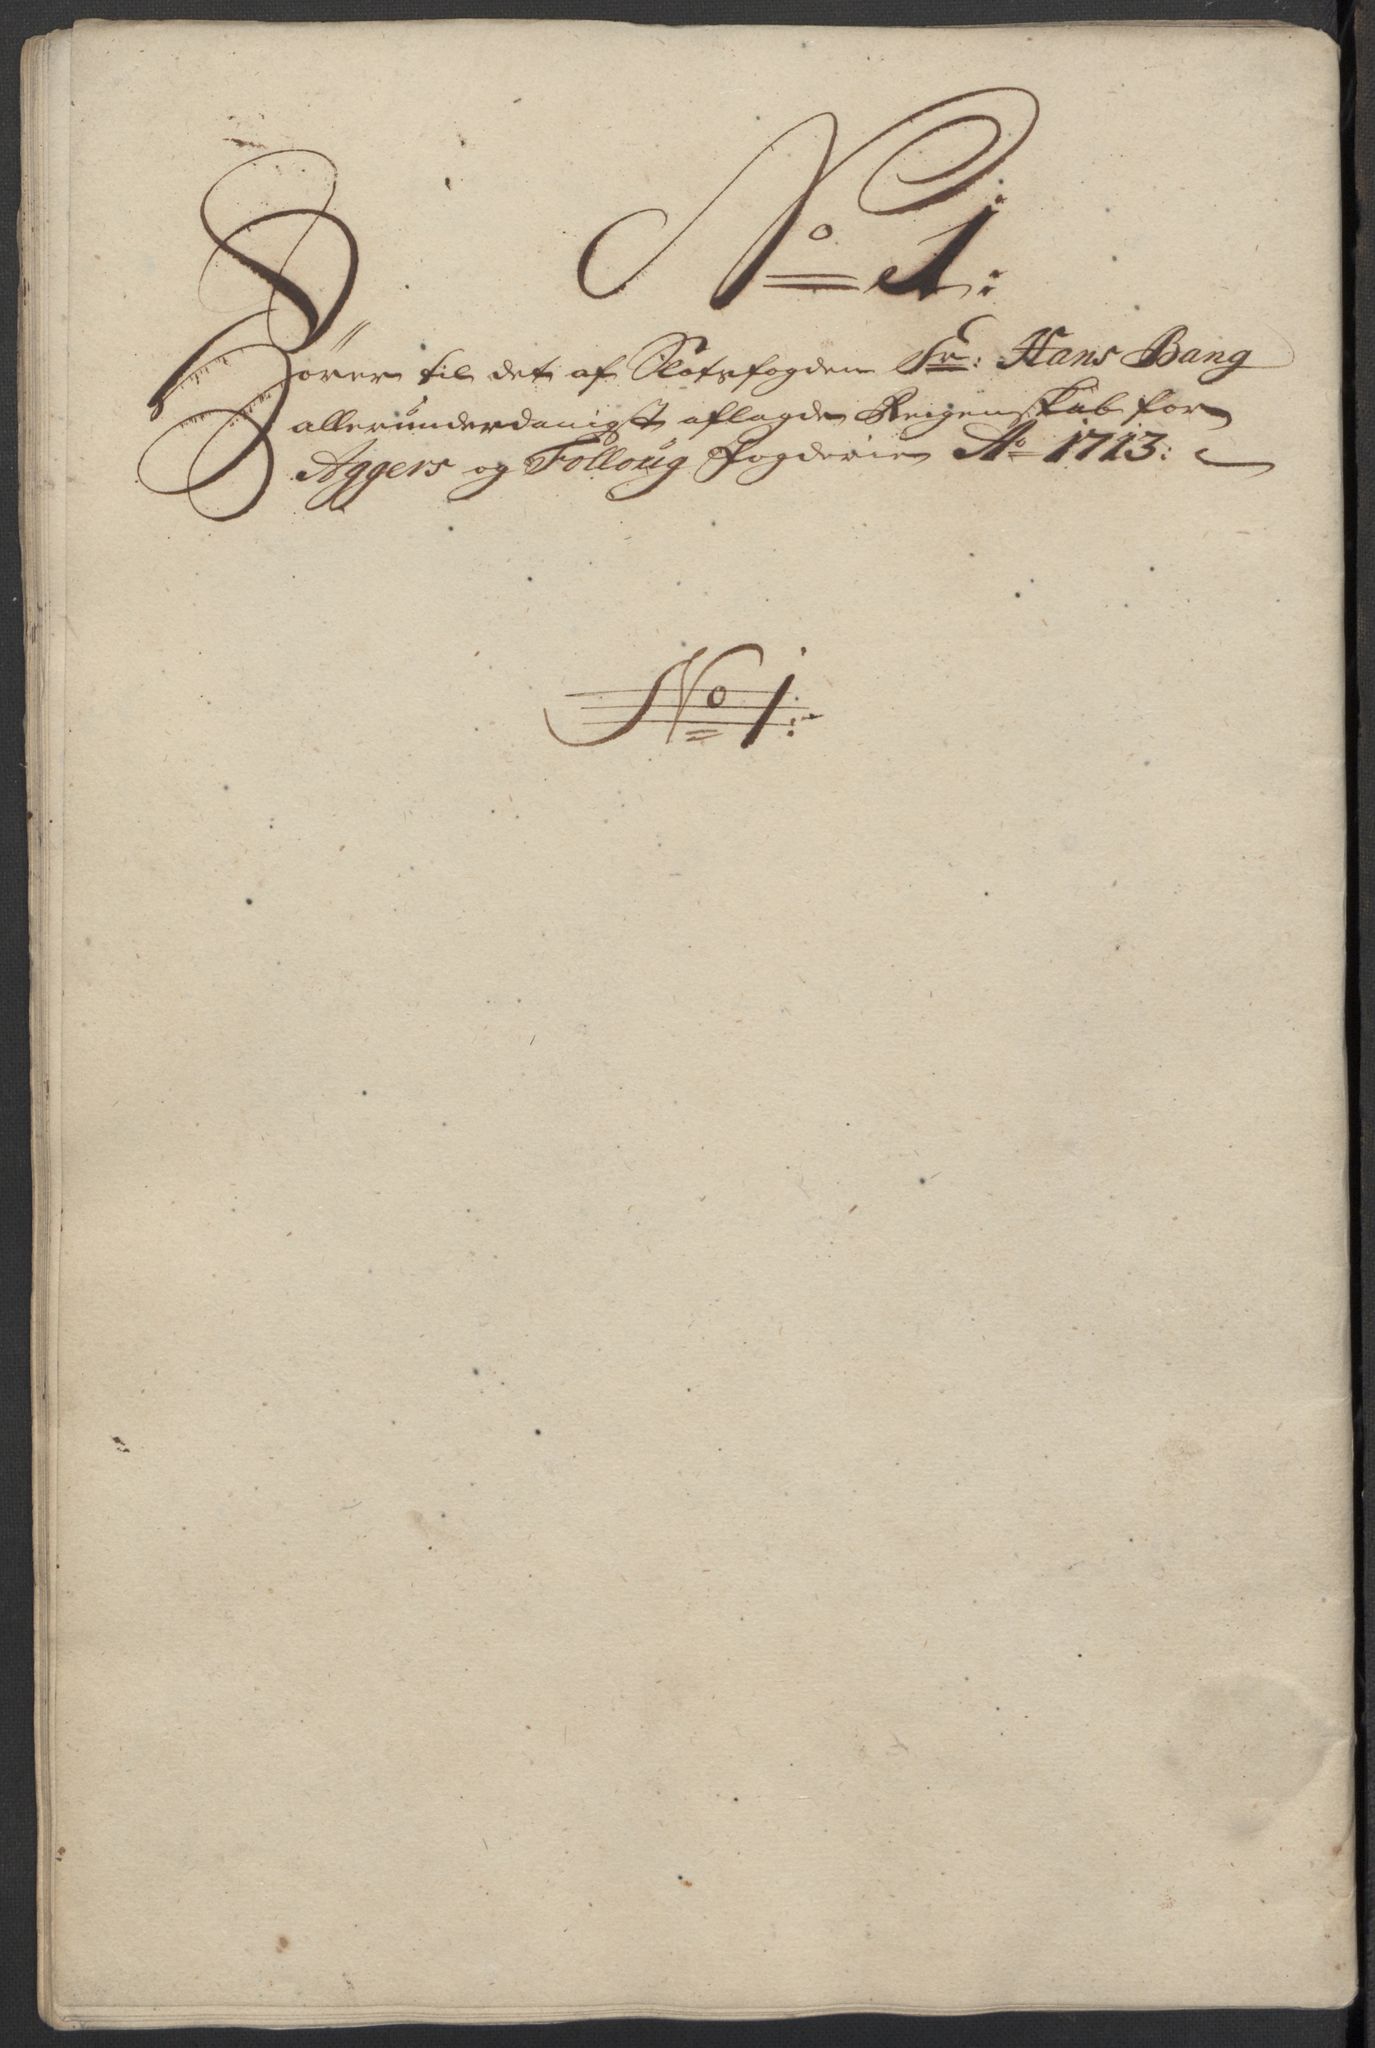 No 1:
Hörer til det af Slotsfogden Sr: Hans Bang
allerunderdanigst aflagde Reigenskab for
Aggers og Folloug fogderie Ao 1713:
No 1: